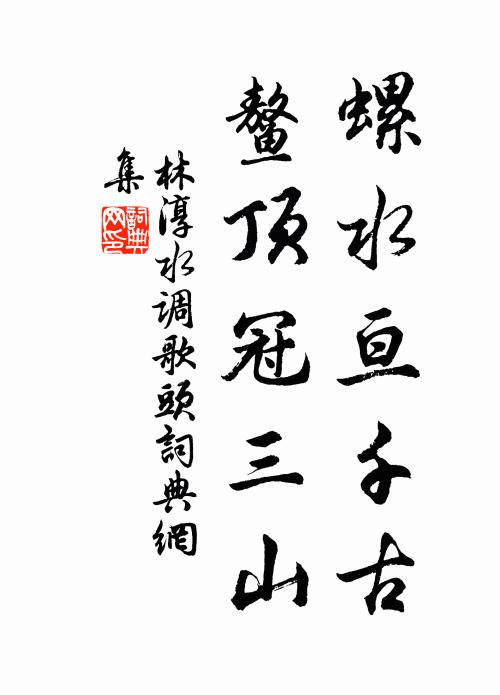 螺水亘千古
鳌顶冠三山
林淳水调歌頭詞典網
集
詞典网印